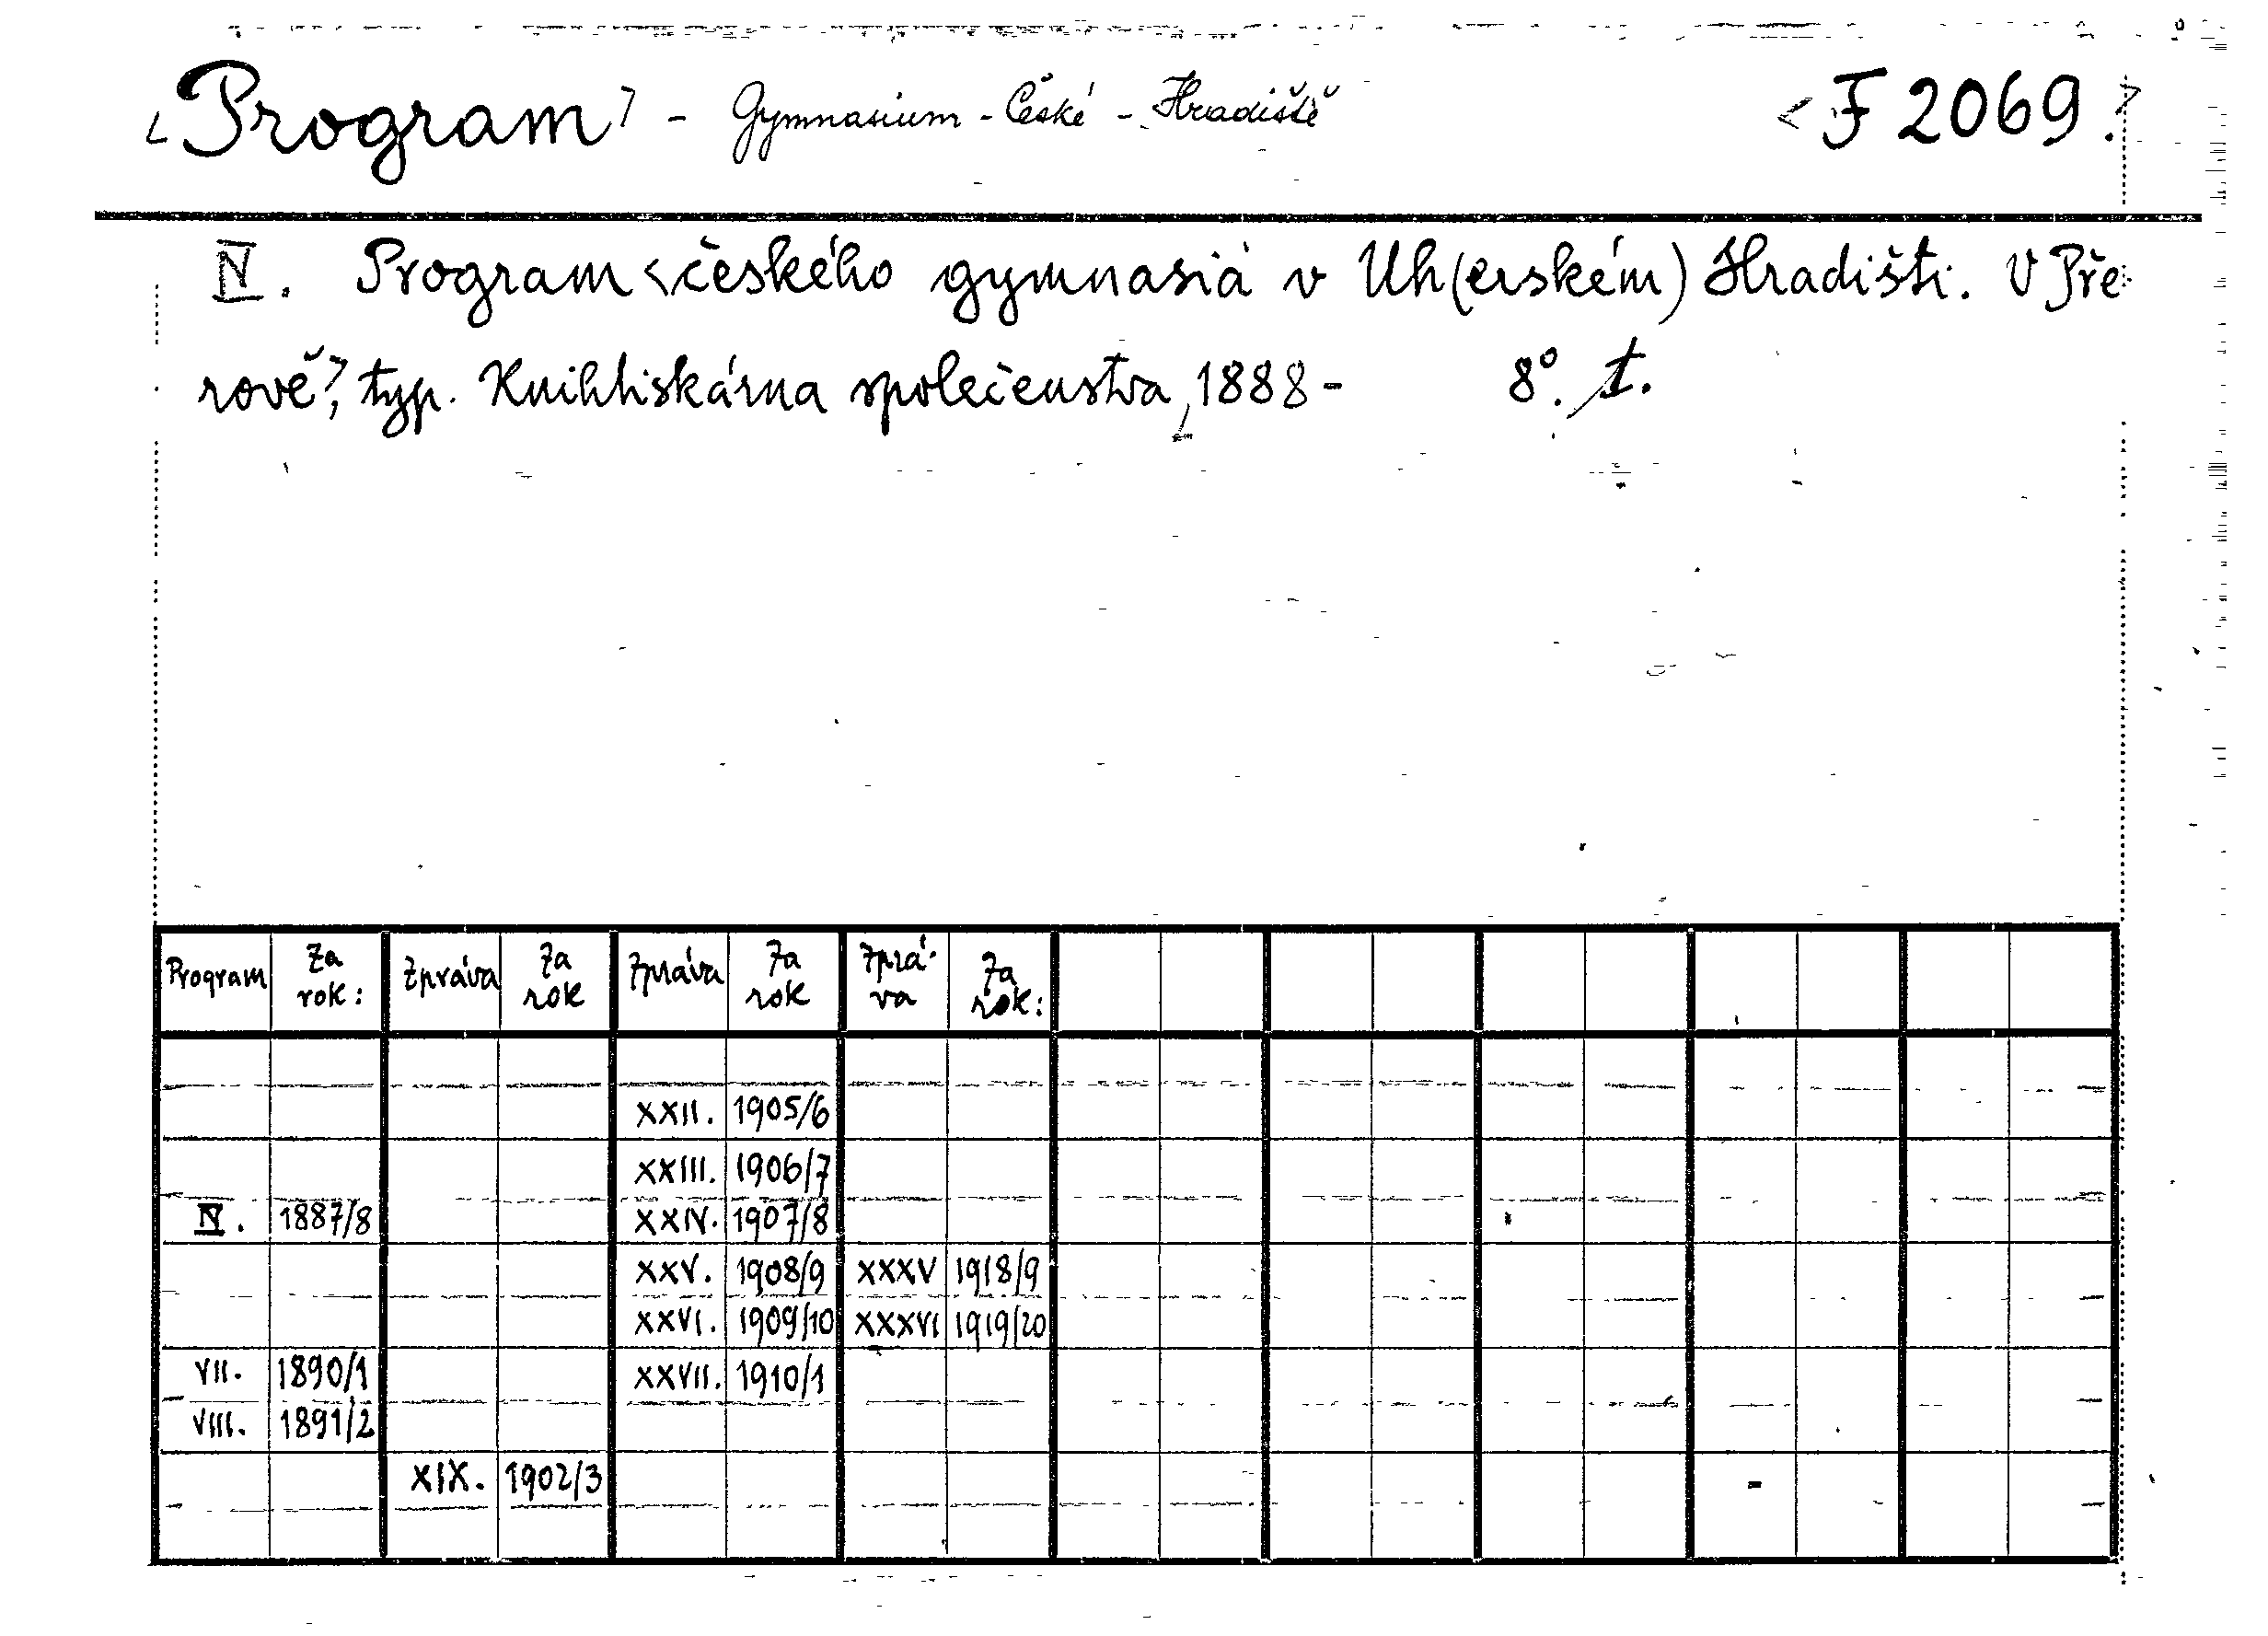 <Program> - Gymnasium - České - Hradiště <F 2069.>
IV. Program <českého gymnasia v Uh(erském) Hradišti. V Pře-
rově>, typ. Knihtiskárna společenstva, 1888- 8°. t.
Program Za rok: Zpráva Za rok Zpráva Za rok Zprá-va Za rok:
XXII. 1905/6
XXIII. 1906/7
IV. 1887/8 XXIV. 1907/8
XXV. 1908/9 XXXV 1918/9
XXVI. 1909/10 XXXVI 1919/20
VII. 1890/1 XXVII. 1910/1
VIII. 1891/2
XIX. 1902/3